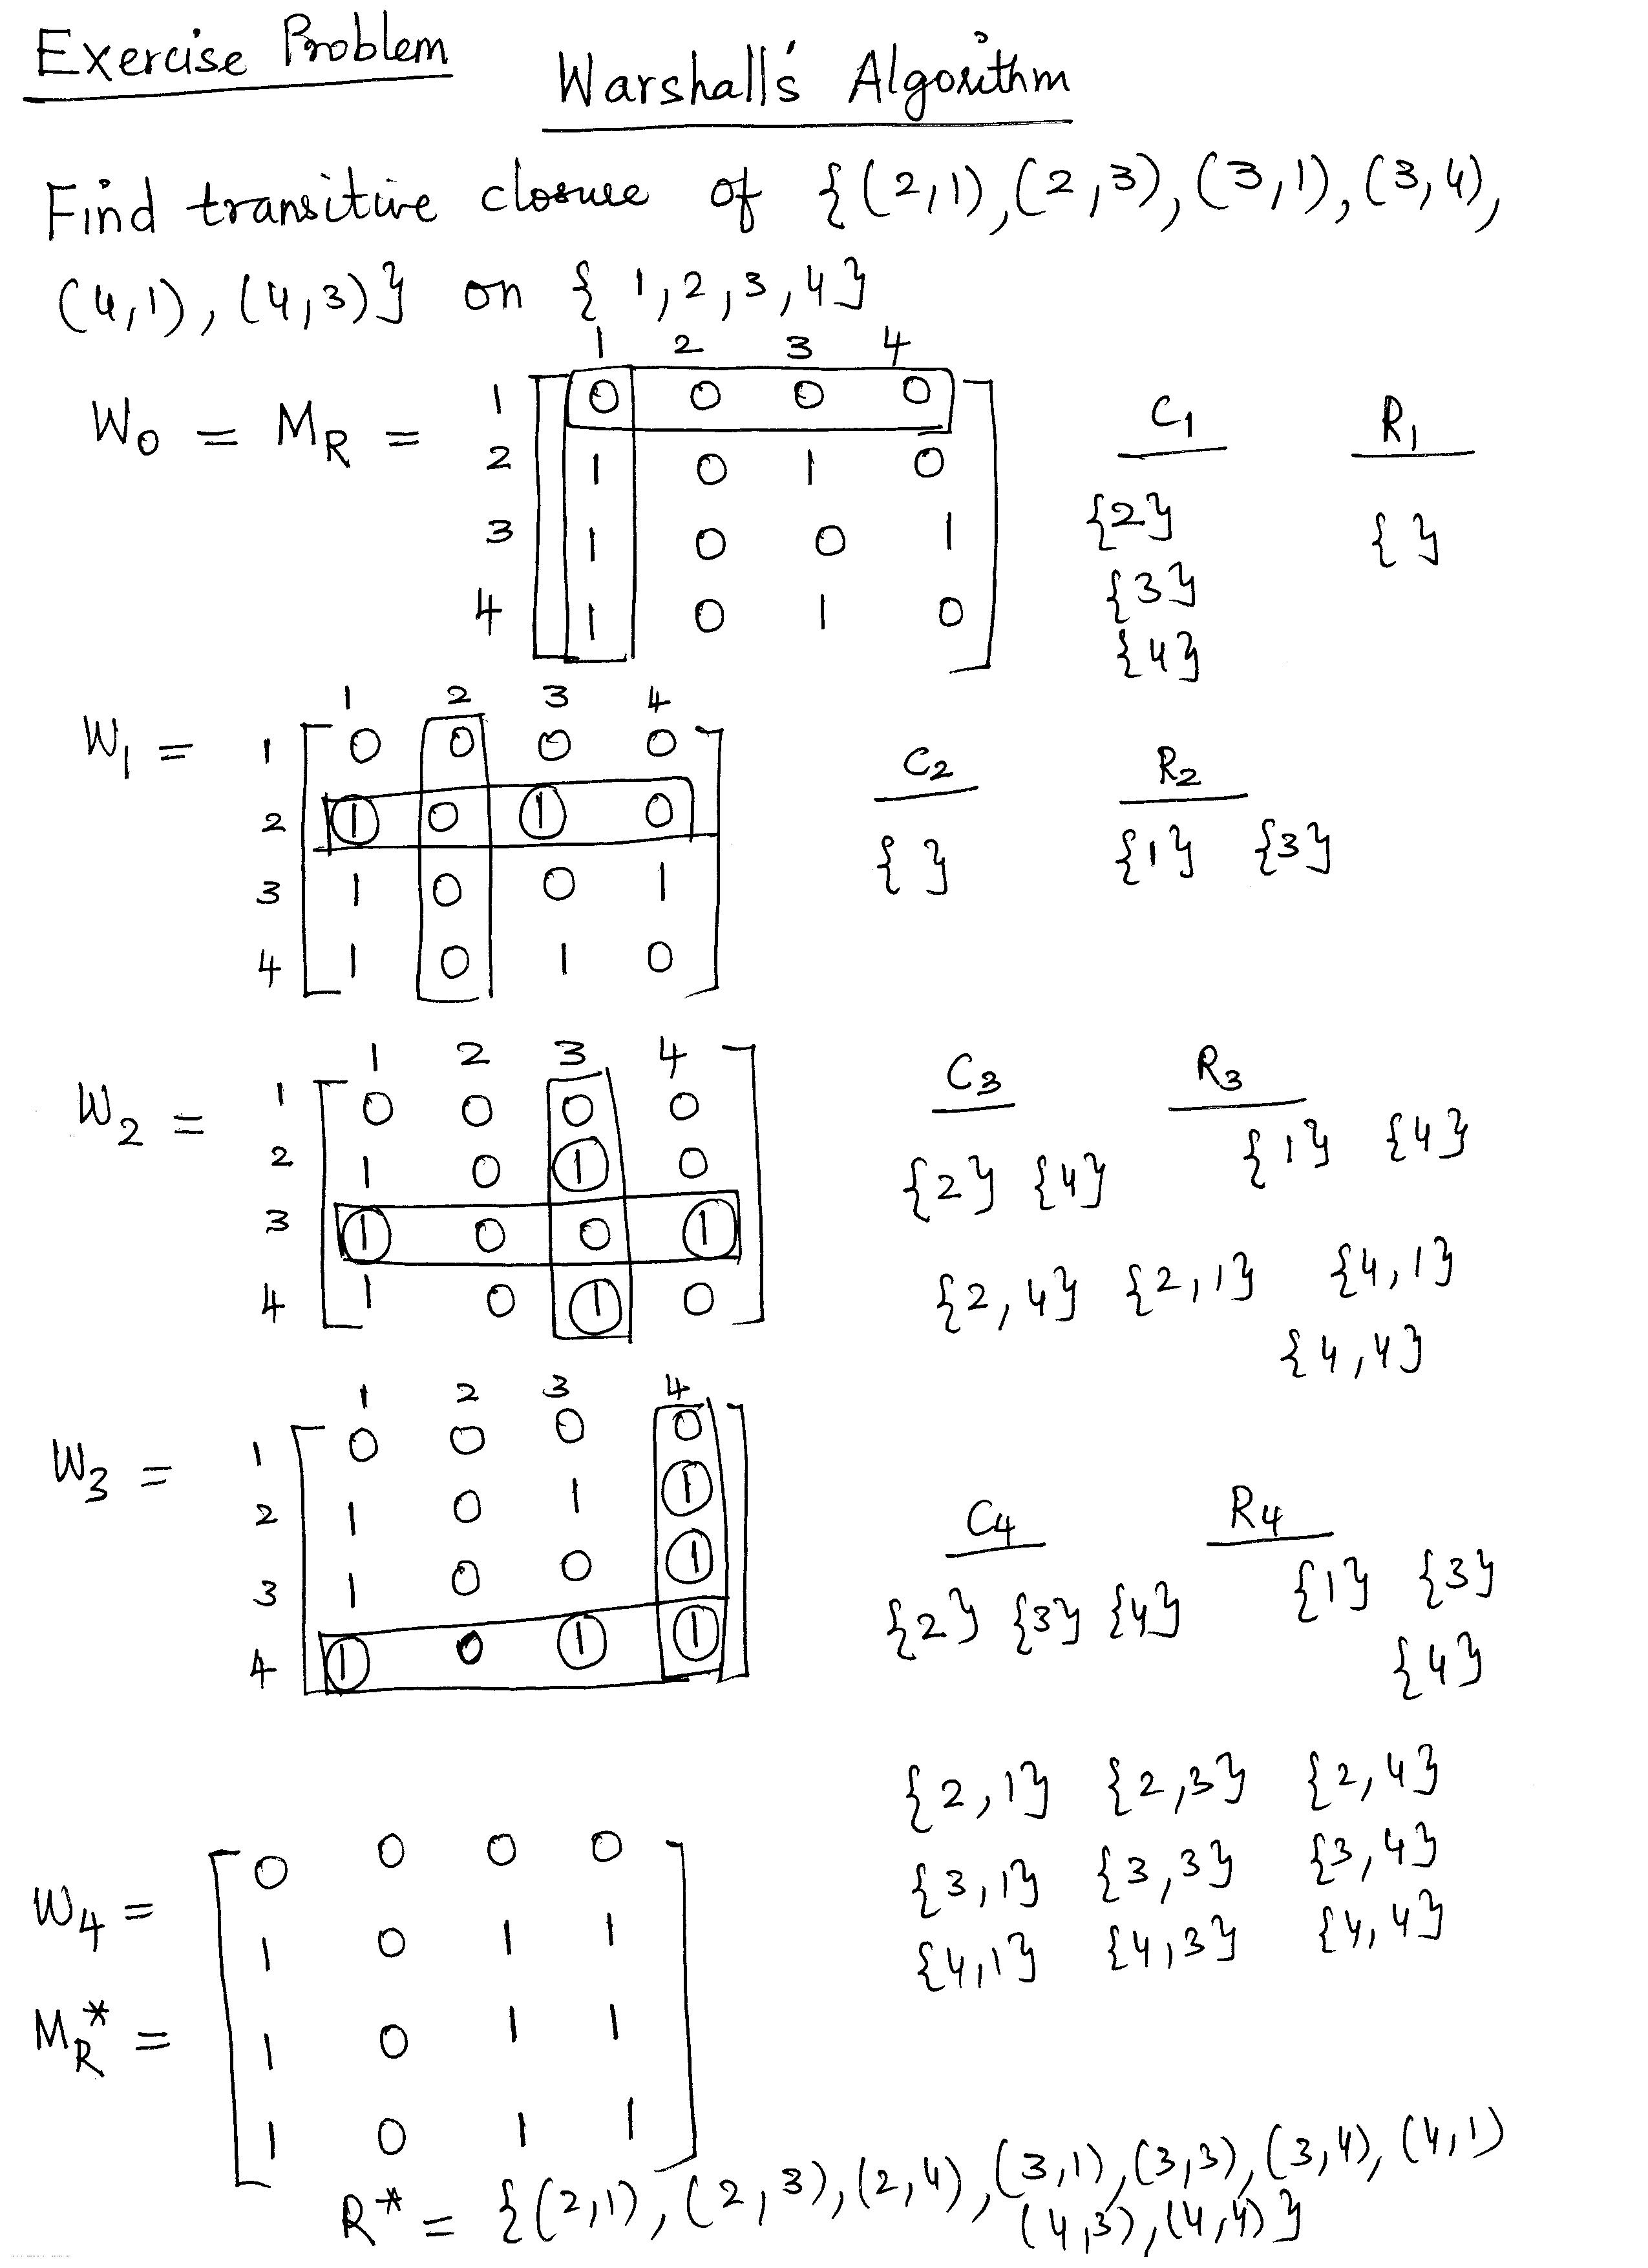 Exercise Problem
Warshall's Algorithm
Find transitive closure of {(2,1),(2,3),(3,1),(3,4),
(4,1),(4,3)} on {1,2,3,4}
1 2 3 4
W0 = MR = 1 0 0 0 0
2 1 0 1 0
3 1 0 0 1
4 1 0 1 0
C1 R1
{2} { }
{3}
{4}
1 2 3 4
W1 = 1 0 0 0 0
2 1 0 1 0
3 1 0 0 1
4 1 0 1 0
C2 R2
{ } {1} {3}
1 2 3 4
W2 = 1 0 0 0 0
2 1 0 1 0
3 1 0 0 1
4 1 0 1 0
C3 R3
{2} {4} {1} {4}
{2,4} {2,1} {4,1}
{4,4}
1 2 3 4
W3 = 1 0 0 0 0
2 1 0 1 1
3 1 0 0 1
4 1 0 1 1
C4 R4
{2} {3} {4} {1} {3}
{4}
{2,1} {2,3} {2,4}
{3,1} {3,3} {3,4}
{4,1} {4,3} {4,4}
W4 = 0 0 0 0
1 0 1 1
MR* = 1 0 1 1
1 0 1 1
R* = {(2,1),(2,3),(2,4),(3,1),(3,3),(3,4),(4,1)
(4,3),(4,4)}